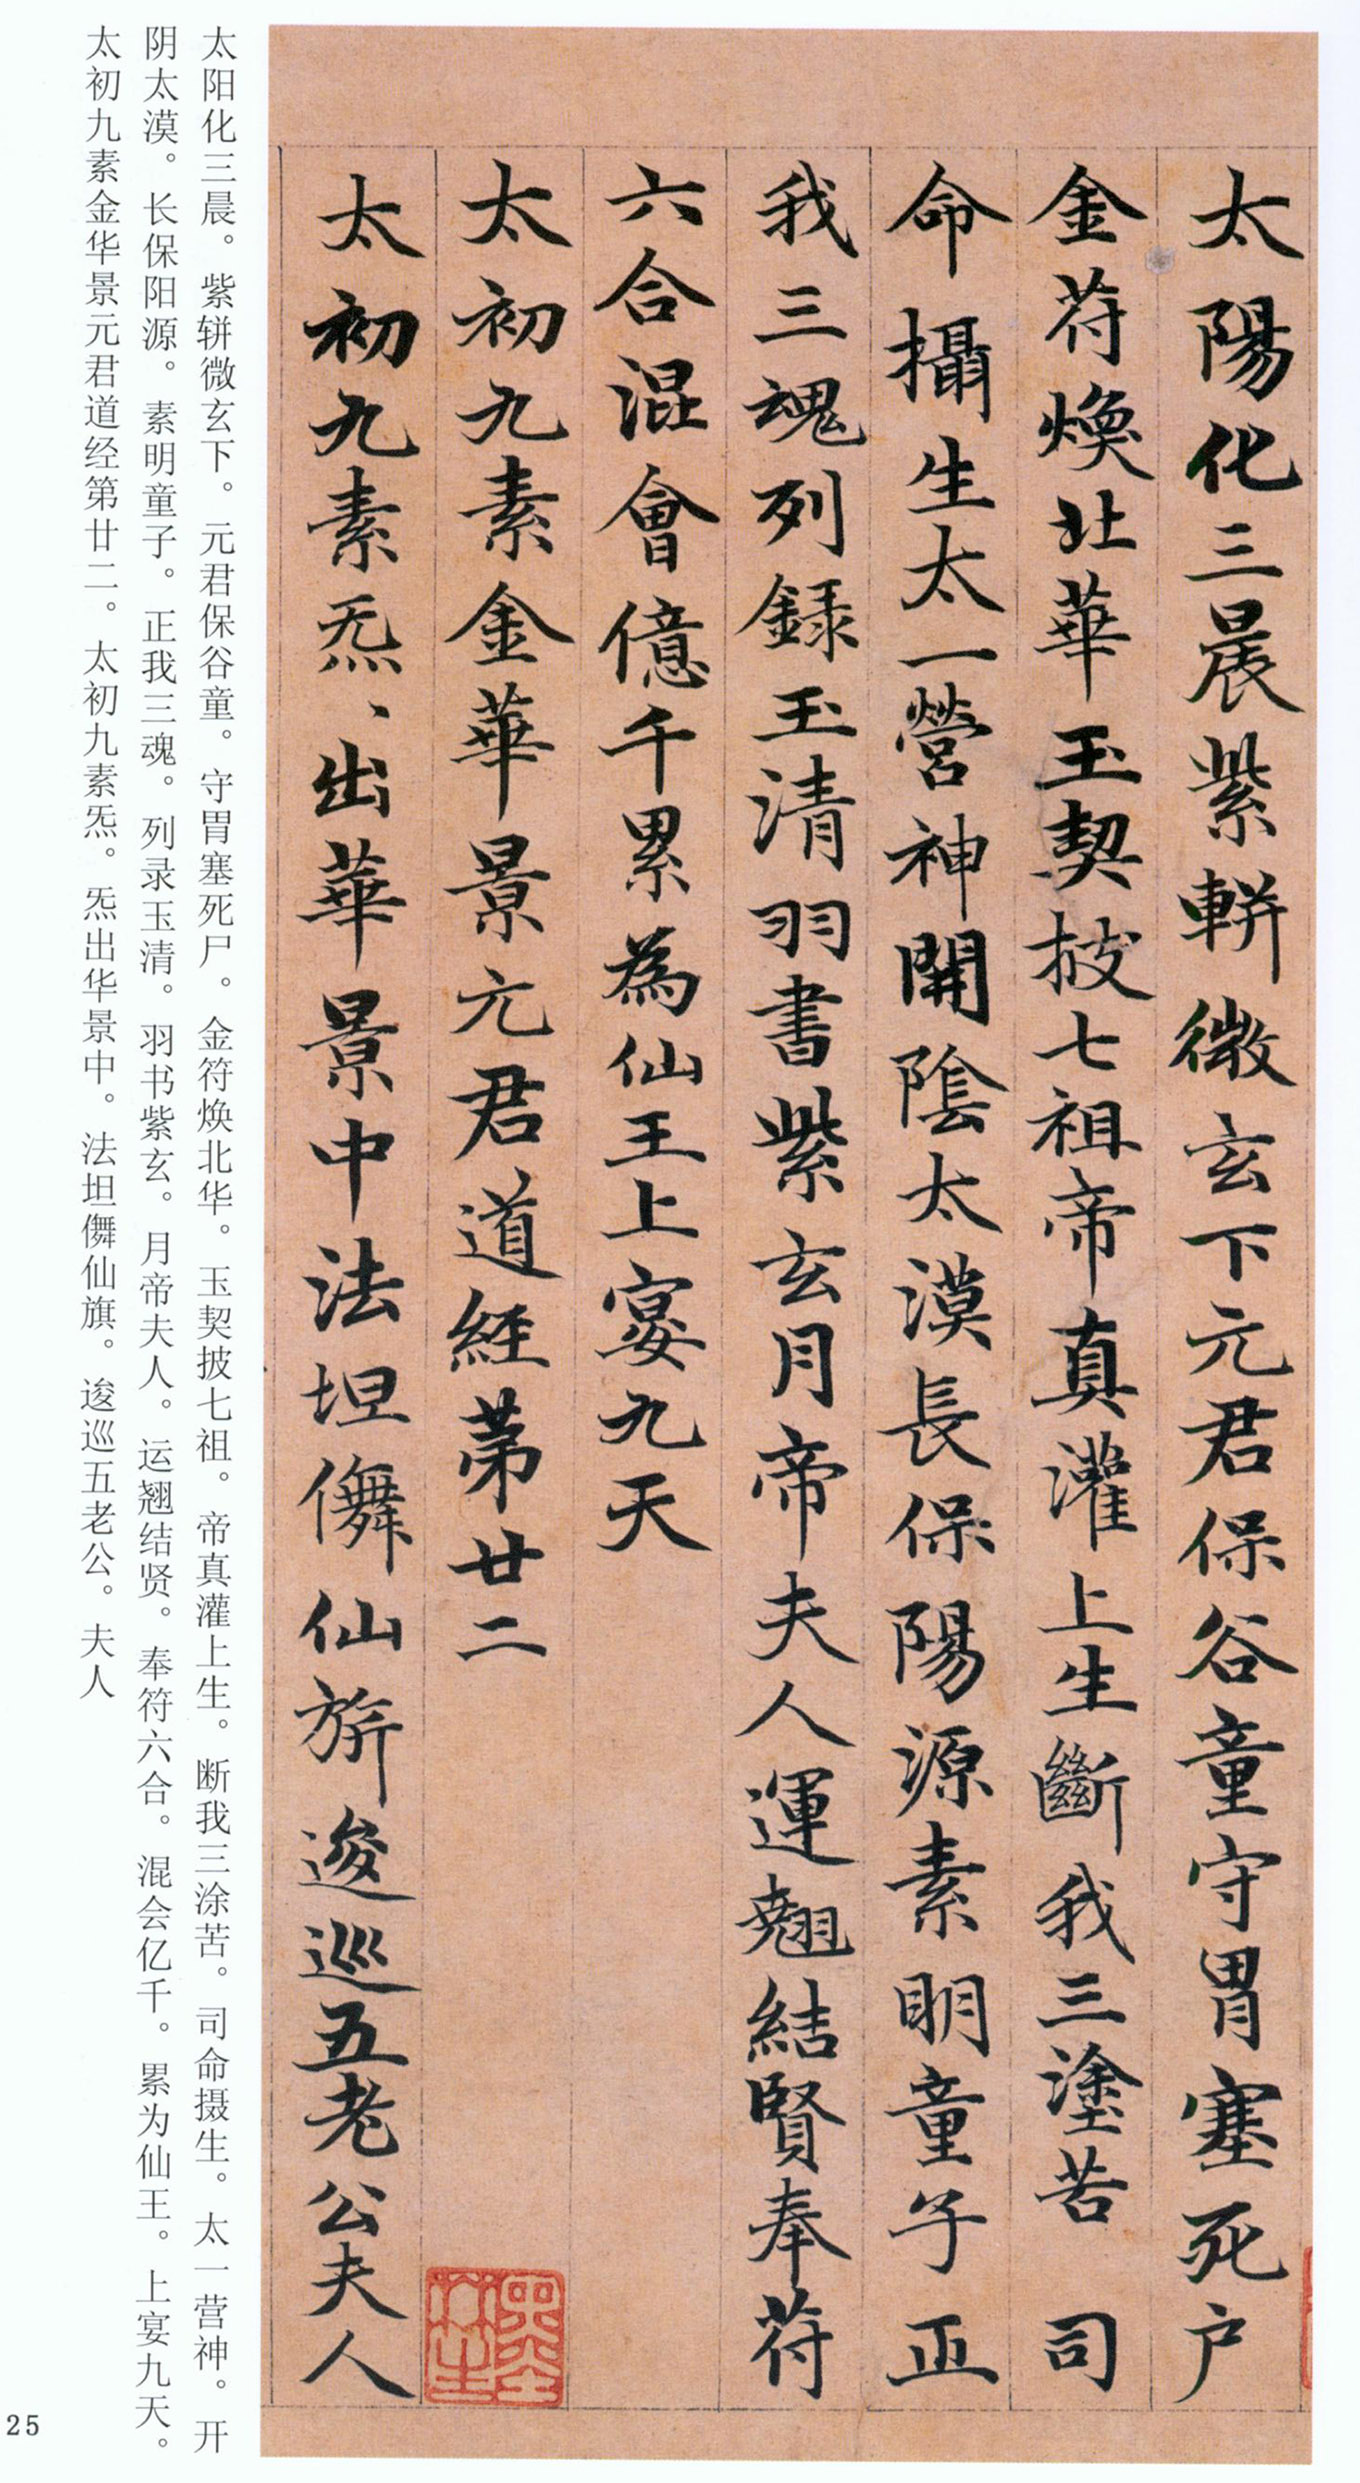 太陽化三晨紫軿微玄下元君保谷童守胃塞死户
金苻煥北華玉契披七祖帝真灌上生斷我三塗苦司
命攝生太一營神開陰太漠長保陽源素明童子正
我三魂列録玉清羽書紫玄月帝夫人運翹結賢奉苻
六合混會億千累為仙王上宴九天
太初九素金華景元君道經苐廿二
太初九素炁、出華景中法坦儛仙旂逡巡五老公夫人
太阳化三晨。紫軿微玄下。元君保谷童。守胃塞死尸。金符焕北华。玉契披七祖。帝真灌上生。断我三涂苦。司命摄生。太一营神。开
阴太漠。长保阳源。素明童子。正我三魂。列录玉清。羽书紫玄。月帝夫人。运翘结贤。奉符六合。混会亿千。累为仙王。上宴九天。
太初九素金华景元君道经第廿二。太初九素炁。炁出华景中。法坦儛仙旗。逡巡五老公。夫人
25